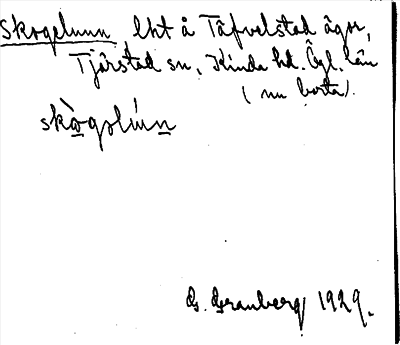 Skogelunn lht å Tåfvelstad ägor,
Tjärstad sn, Kinda hd. Ögl. län
(nu borta).
skògslún
G. Granberg 1929.